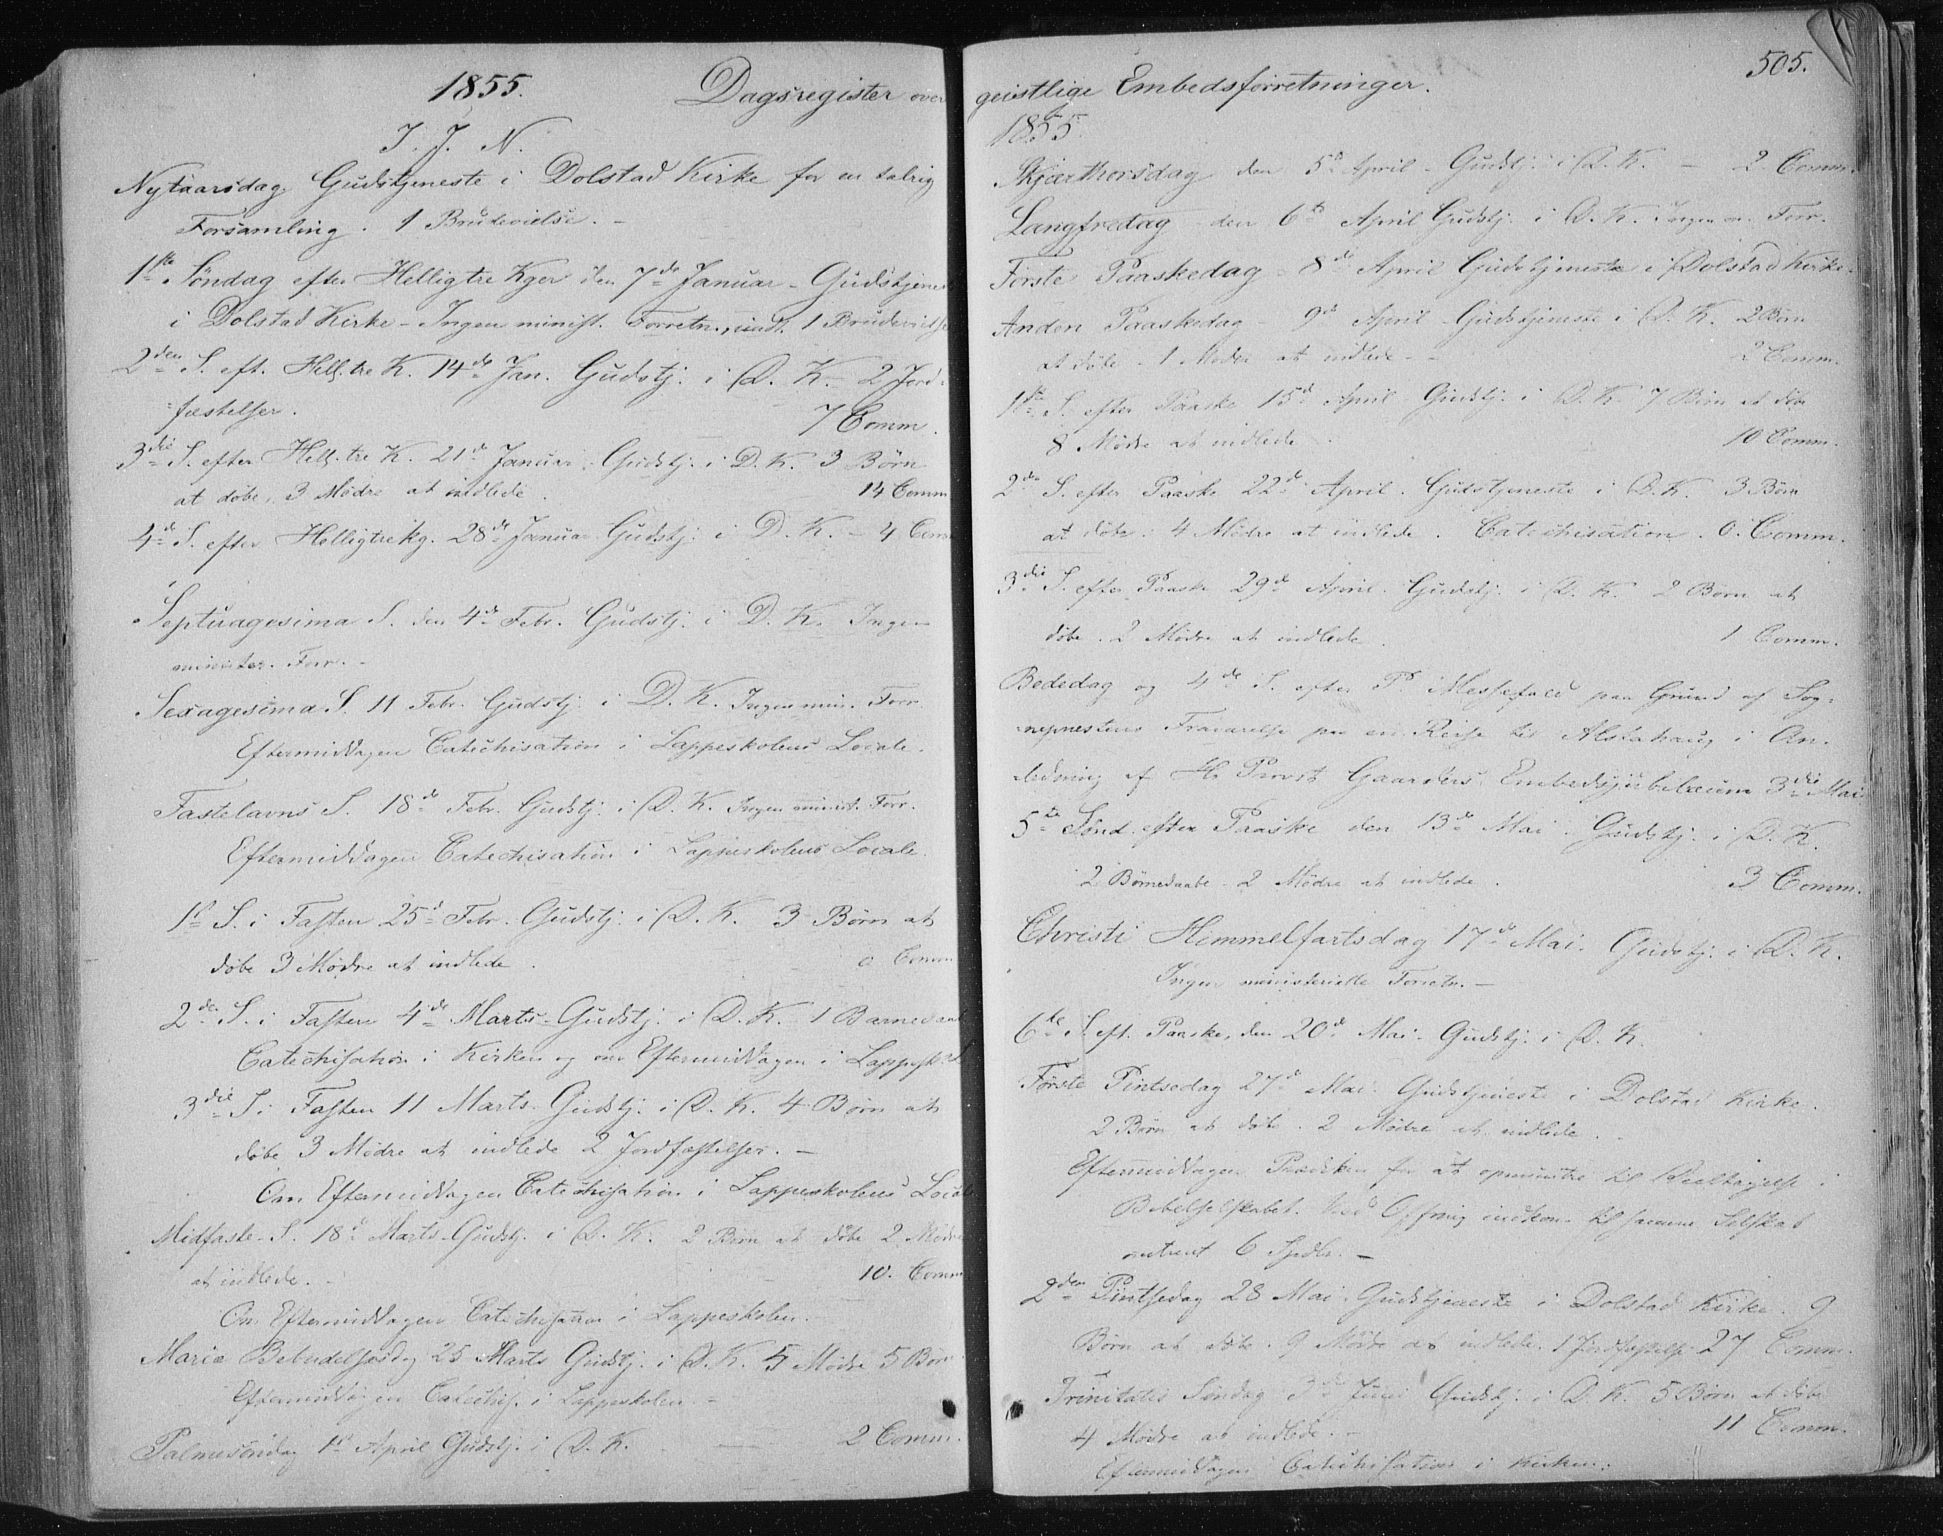 1855. Dagsregister over
I. J. N.
Nytaarsdag Gudstjeneste i Dolstad Kirke for en talrig
Forsamling. 1 Brudevielse. -
1ste Søndag efter Helligtre Kger den 7de Januar - Gudstjeneste
i Dolstad Kirke - Ingen minist. Forretn., undt. 1 Brudevielse
2den S. eft. Hell. tre K. 14de Jan. Gudstj. i D. K. - 2 Jord-
fæstelser. 7 Comm.
3die S. efter Hell. tre K. 21de Januar. Gudstj. i D. K. 3 Børn
at døbe, 3 Mødre at indlede. 14 Comm
4de S. efter Helligtrekg. 28de Januar Gudstj. i D. K. - 4 Comm
Septuagesima S. den 4de Febr. Gudstj. i D. K. Ingen
minister. Forr. -
Sexagesima S. 11 Febr. Gudstj. i D. K. Ingen min. Forr.
Eftermiddagen Catechisation i Lappeskolens Locale.
Fastelavns S. 18de Febr. Gudstj. i D. K. Ingen minist. Forr.
Eftermiddagen Catechisation i Lappeskolens Locale.
1st S. i Fasten 25d Febr. Gudstj. i D. K. 3 Børn at
døbe 3 Mødre at indlede. 0 Comm
2den S. i Fasten 4de Marts - Gudstj. i D. K. 1 Barnedaab
Catechisation i Kirken og om Eftermiddagen i Lappesk. L
3die S. i Fasten 11 Marts. Gudstj. i D. K. 4 Børn at
døbe 3 Mødre at indlede 2 Jordfæstelser. -
Om Eftermiddagen Catechisation i Lappeskolens Locale
Midfaste S. 18d Marts - Gudstj. i D. K. 2 Børn at døbe 2 Mødre
at indlede. - 10. Comm
Om Eftermiddagen Catechisation i Lappeskolen.
Mariæ Bebudelsesdag 25 Marts Gudstj. i D. K. 5 Mødre 5 Børn
Eftermiddagen Catechis. i Lappeskolen -
Palmesøndag 1st April Gudstj. i D. K. 2 Comm.
geistlige Embedsforretninger. 505.
1855.
Skjærthorsdag den 5te April - Gudstj. i D. K. - 2 Comm.
Langfredag - den 6te April Gudstj. i D. K. Ingen m. Forr.
Første Paaskedag - 8de April Gudstjeneste i Dolstad Kirke.
Anden Paaskedag 9de April Gudstjeneste i D. K. 2 Børn
at døbe - 1 Moder at indlede - 2 Comm.
1ste S. efter Paaske 15d April - Gudstj. i D. K. 7 Børn at døbe
8 Mødre at indlede. 10 Comm.
2den S. efter Paaske 22de April. Gudstjeneste i D. K. 3 Børn
at døbe. 4 Mødre at indlede. Catechisation. 0. Comm.
3die S. efter Paaske 29de April. Gudstj. i D. K. 2 Børn at
døbe. 2 Mødre at indlede. 1 Comm.
Bededag og 4de S. efter P. Messefald paa Grund af Sog-
nepræstens Fraværelse paa en Reise til Alstahaug i An-
ledning af Hr Provst Gaarders Embedsjubelæum 3die Mai
5te Sønd. efter Paaske den 13de Mai. Gudstj. i D. K.
2 Børnedaabe - 2 Mødre at indlede. 3 Comm.
Christi Himmelfartsdag 17de Mai. Gudstj. i D. K.
Ingen ministerielle Forretn. -
6te S. eft. Paaske, den 20de Mai. Gudstj. i D. K.
Første Pintsedag 27de Mai. Gudstjeneste i Dolstad Kirke.
2 Børn at døbe. 2 Mødre at indlede.
Eftermiddagen Prædiken for at opmuntre til Deeltagelse i
Bibelselskabet. Ved Offring indkom til samme Selskab
omtrent 6 Spdlr. -
2den Pintsedag 28 Mai. Gudstjeneste i Dolstad Kirke. 9
Børn at døbe. 9 Mødre at indlede. 1 Jordfæstelse 27 Comm.
Trinitatis Søndag 3de Juni Gudstj. i D. K. 5 Børn at døbe
4 Mødre at indlede. - 11 Comm.
Eftermiddagen Catechisation i Kirken.